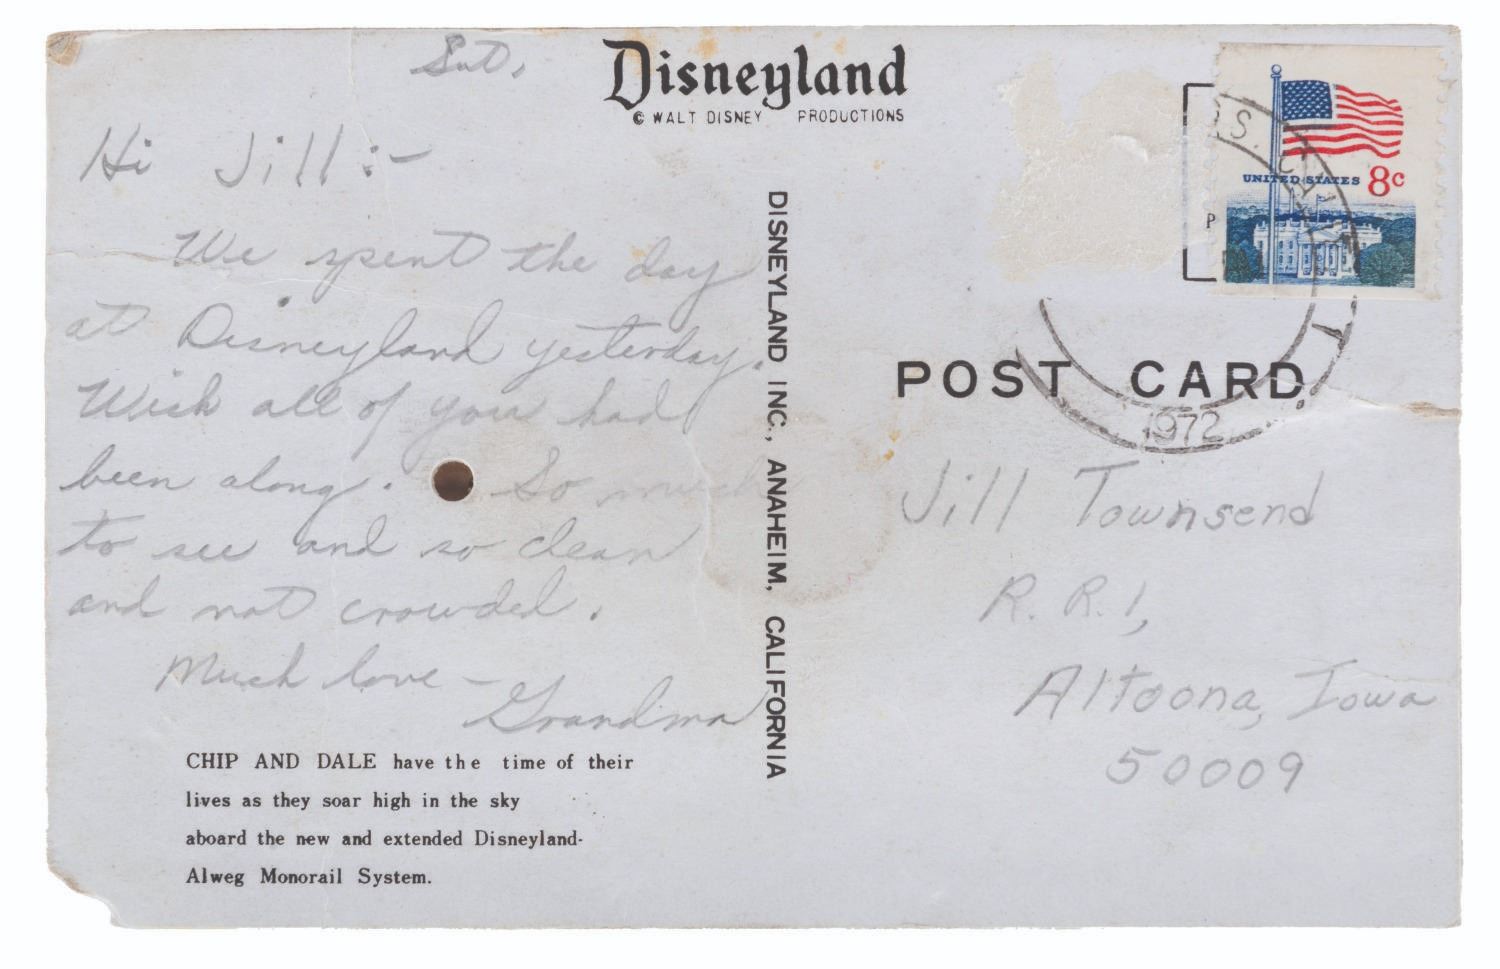 Sat.
Disneyland
© WALT DISNEY PRODUCTIONS
Hi Jill:-
We spent the day
at Disneyland yesterday.
Wish all of you had
been along. So much
to see and so clean
and not crowded.
Much love -
Grandma
CHIP AND DALE have the time of their
lives as they soar high in the sky
aboard the new and extended Disneyland-
Alweg Monorail System.
DISNEYLAND INC., ANAHEIM, CALIFORNIA
P
UNITED STATES 8c
1972
POST CARD
Jill Townsend
R.R.1,
Altoona, Iowa
50009